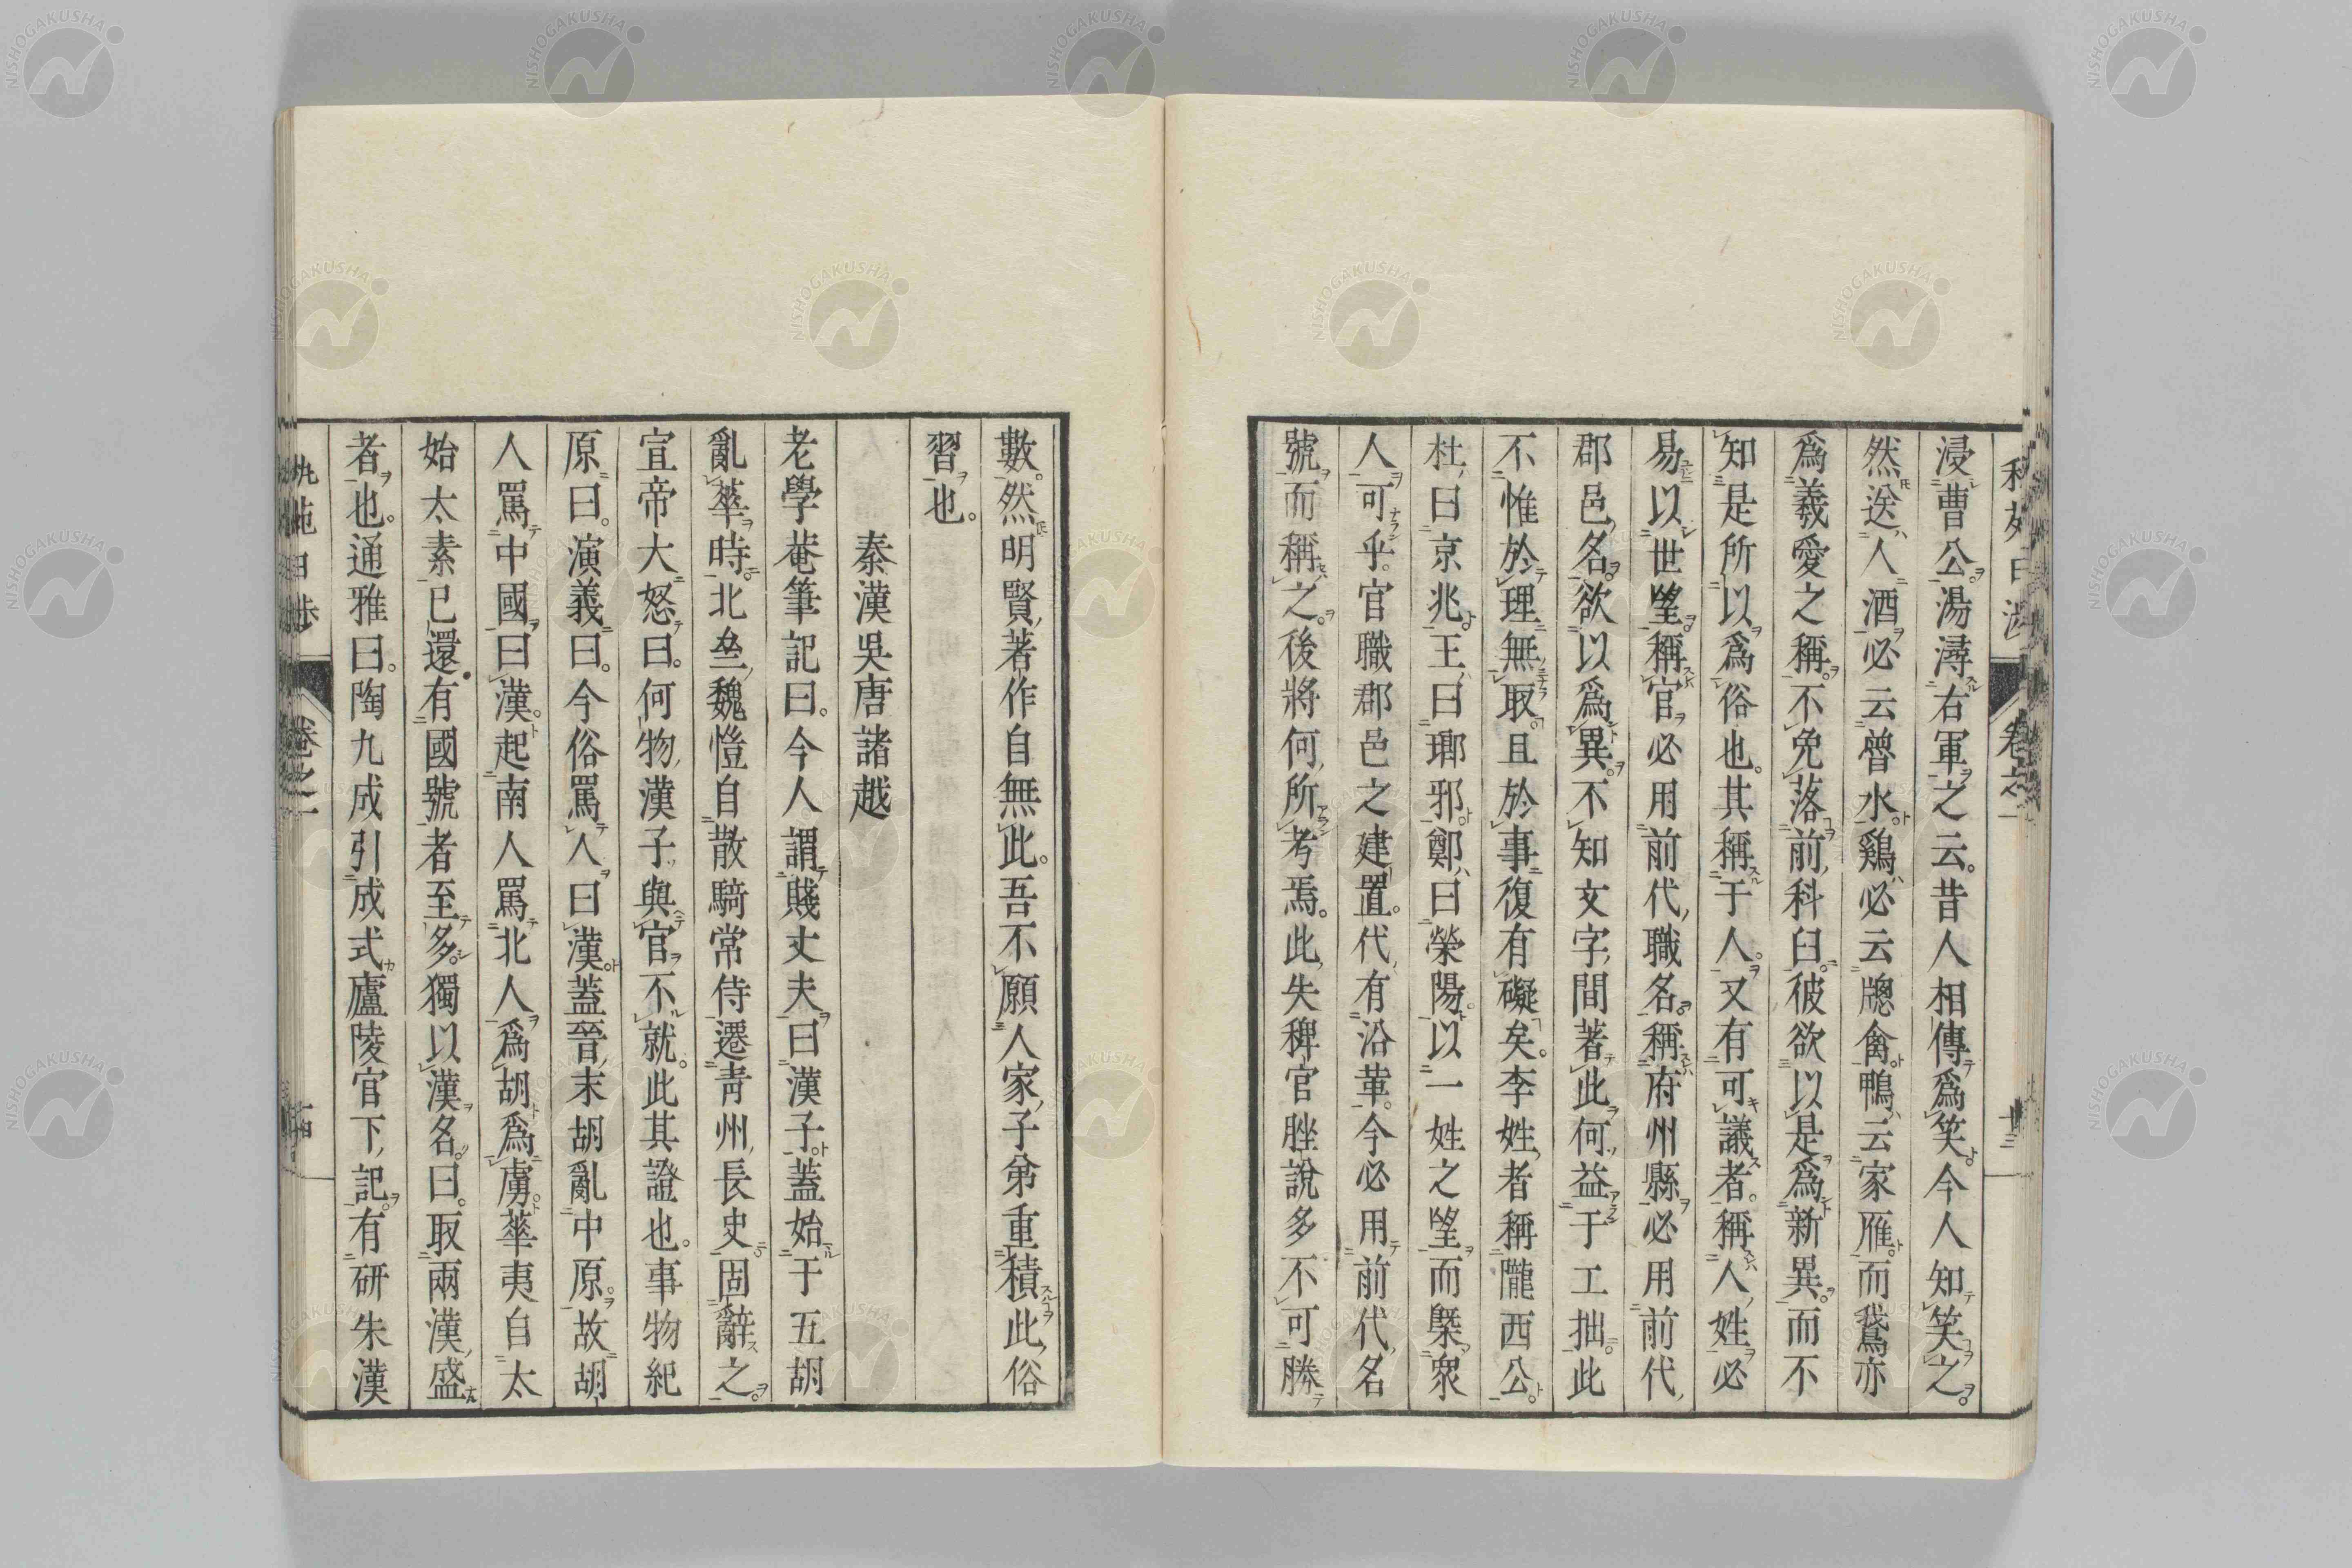 浸曹公湯潯右軍之云。昔人相傳爲笑今人知笑之。
然送人酒必云曾水鷄必云牕禽鴨云家雁而鵞亦
爲義愛之稱。不免落前科臼。彼欲以是爲新異。而不
知是所以爲俗也。其稱于人。又有可議者。稱人姓必
易以世望。稱官必用前代職名。稱府州縣必用前代
郡邑名。欲以爲異。不知文字間著此何益于工拙。此
不惟於理無取。且於事復有礙矣。李姓者稱隴西公
杜曰京兆王曰瑯邪鄭曰滎陽。以一姓之望而槩衆
人可乎。官職郡邑之建置。代有沿革。今必用前代名
號而稱之。後將何所考焉。此失稗官脞說多不可勝
數。然明賢著作自無此。吾不願人家子弟重積此俗
習也。
秦漢吳唐諸越
老學菴筆記曰。今人謂賤丈夫曰漢子。蓋始于五胡
亂華時。北亝魏愷自散騎常侍遷靑州長史。固辭之。
宣帝大怒曰。何物漢子與官不就。此其證也。事物紀
原曰。演義曰。今俗罵人曰漢。蓋晉末胡亂中原。故胡
人罵中國曰漢。起南人罵北人爲胡爲虜。華夷自太
始太素已還。有國號者至多。獨以漢名。曰。取兩漢盛
者也。通雅曰。陶九成引成式廬陵官下記。有研朱漢
卷之一